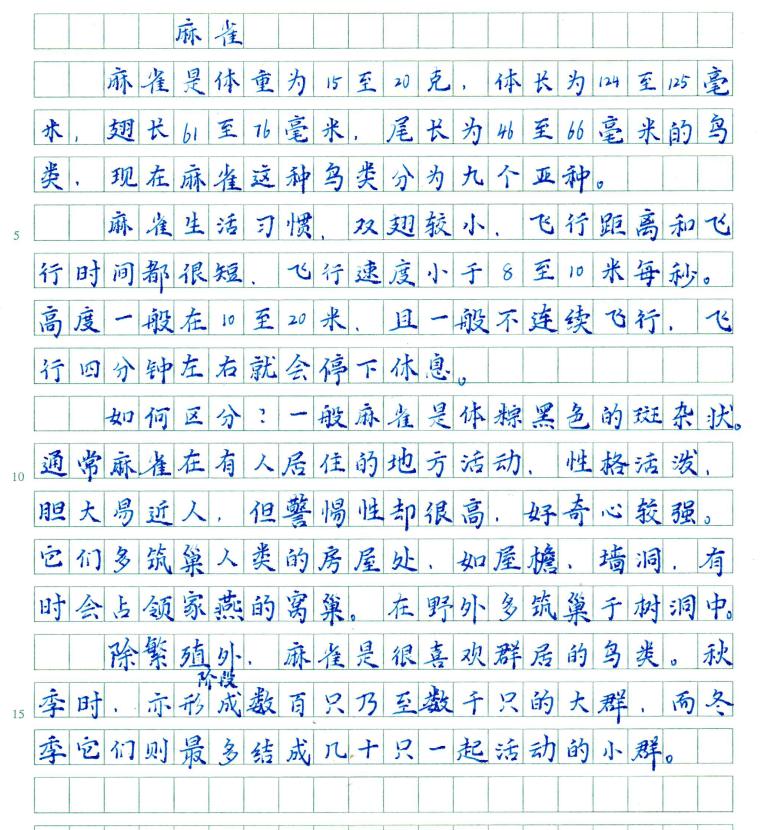 麻雀
麻雀是体重为15至20克，体长为124至125毫
米，翅长61至76毫米，尾长为46至66毫米的鸟
类，现在麻雀这种鸟类分为九个亚种。
麻雀生活习惯，双翅较小，飞行距离和飞
5
行时间都很短，飞行速度小于8至10米每秒。
高度一般在10至20米，且一般不连续飞行，飞
行四分钟左右就会停下休息。
如何区分？一般麻雀是体粽黑色的斑杂状。
通常麻雀在有人居住的地方活动，性格活泼，
10
胆大易近人，但警惕性却很高，好奇心较强。
它们多筑巢人类的房屋处，如屋檐，墙洞，有
时会占领家燕的窝巢。在野外多筑巢于树洞中。
除繁殖外，麻雀是很喜欢群居的鸟类。秋
阶段
季时，亦形成数百只乃至数千只的大群，而冬
15
季它们则最多结成几十只一起活动的小群。